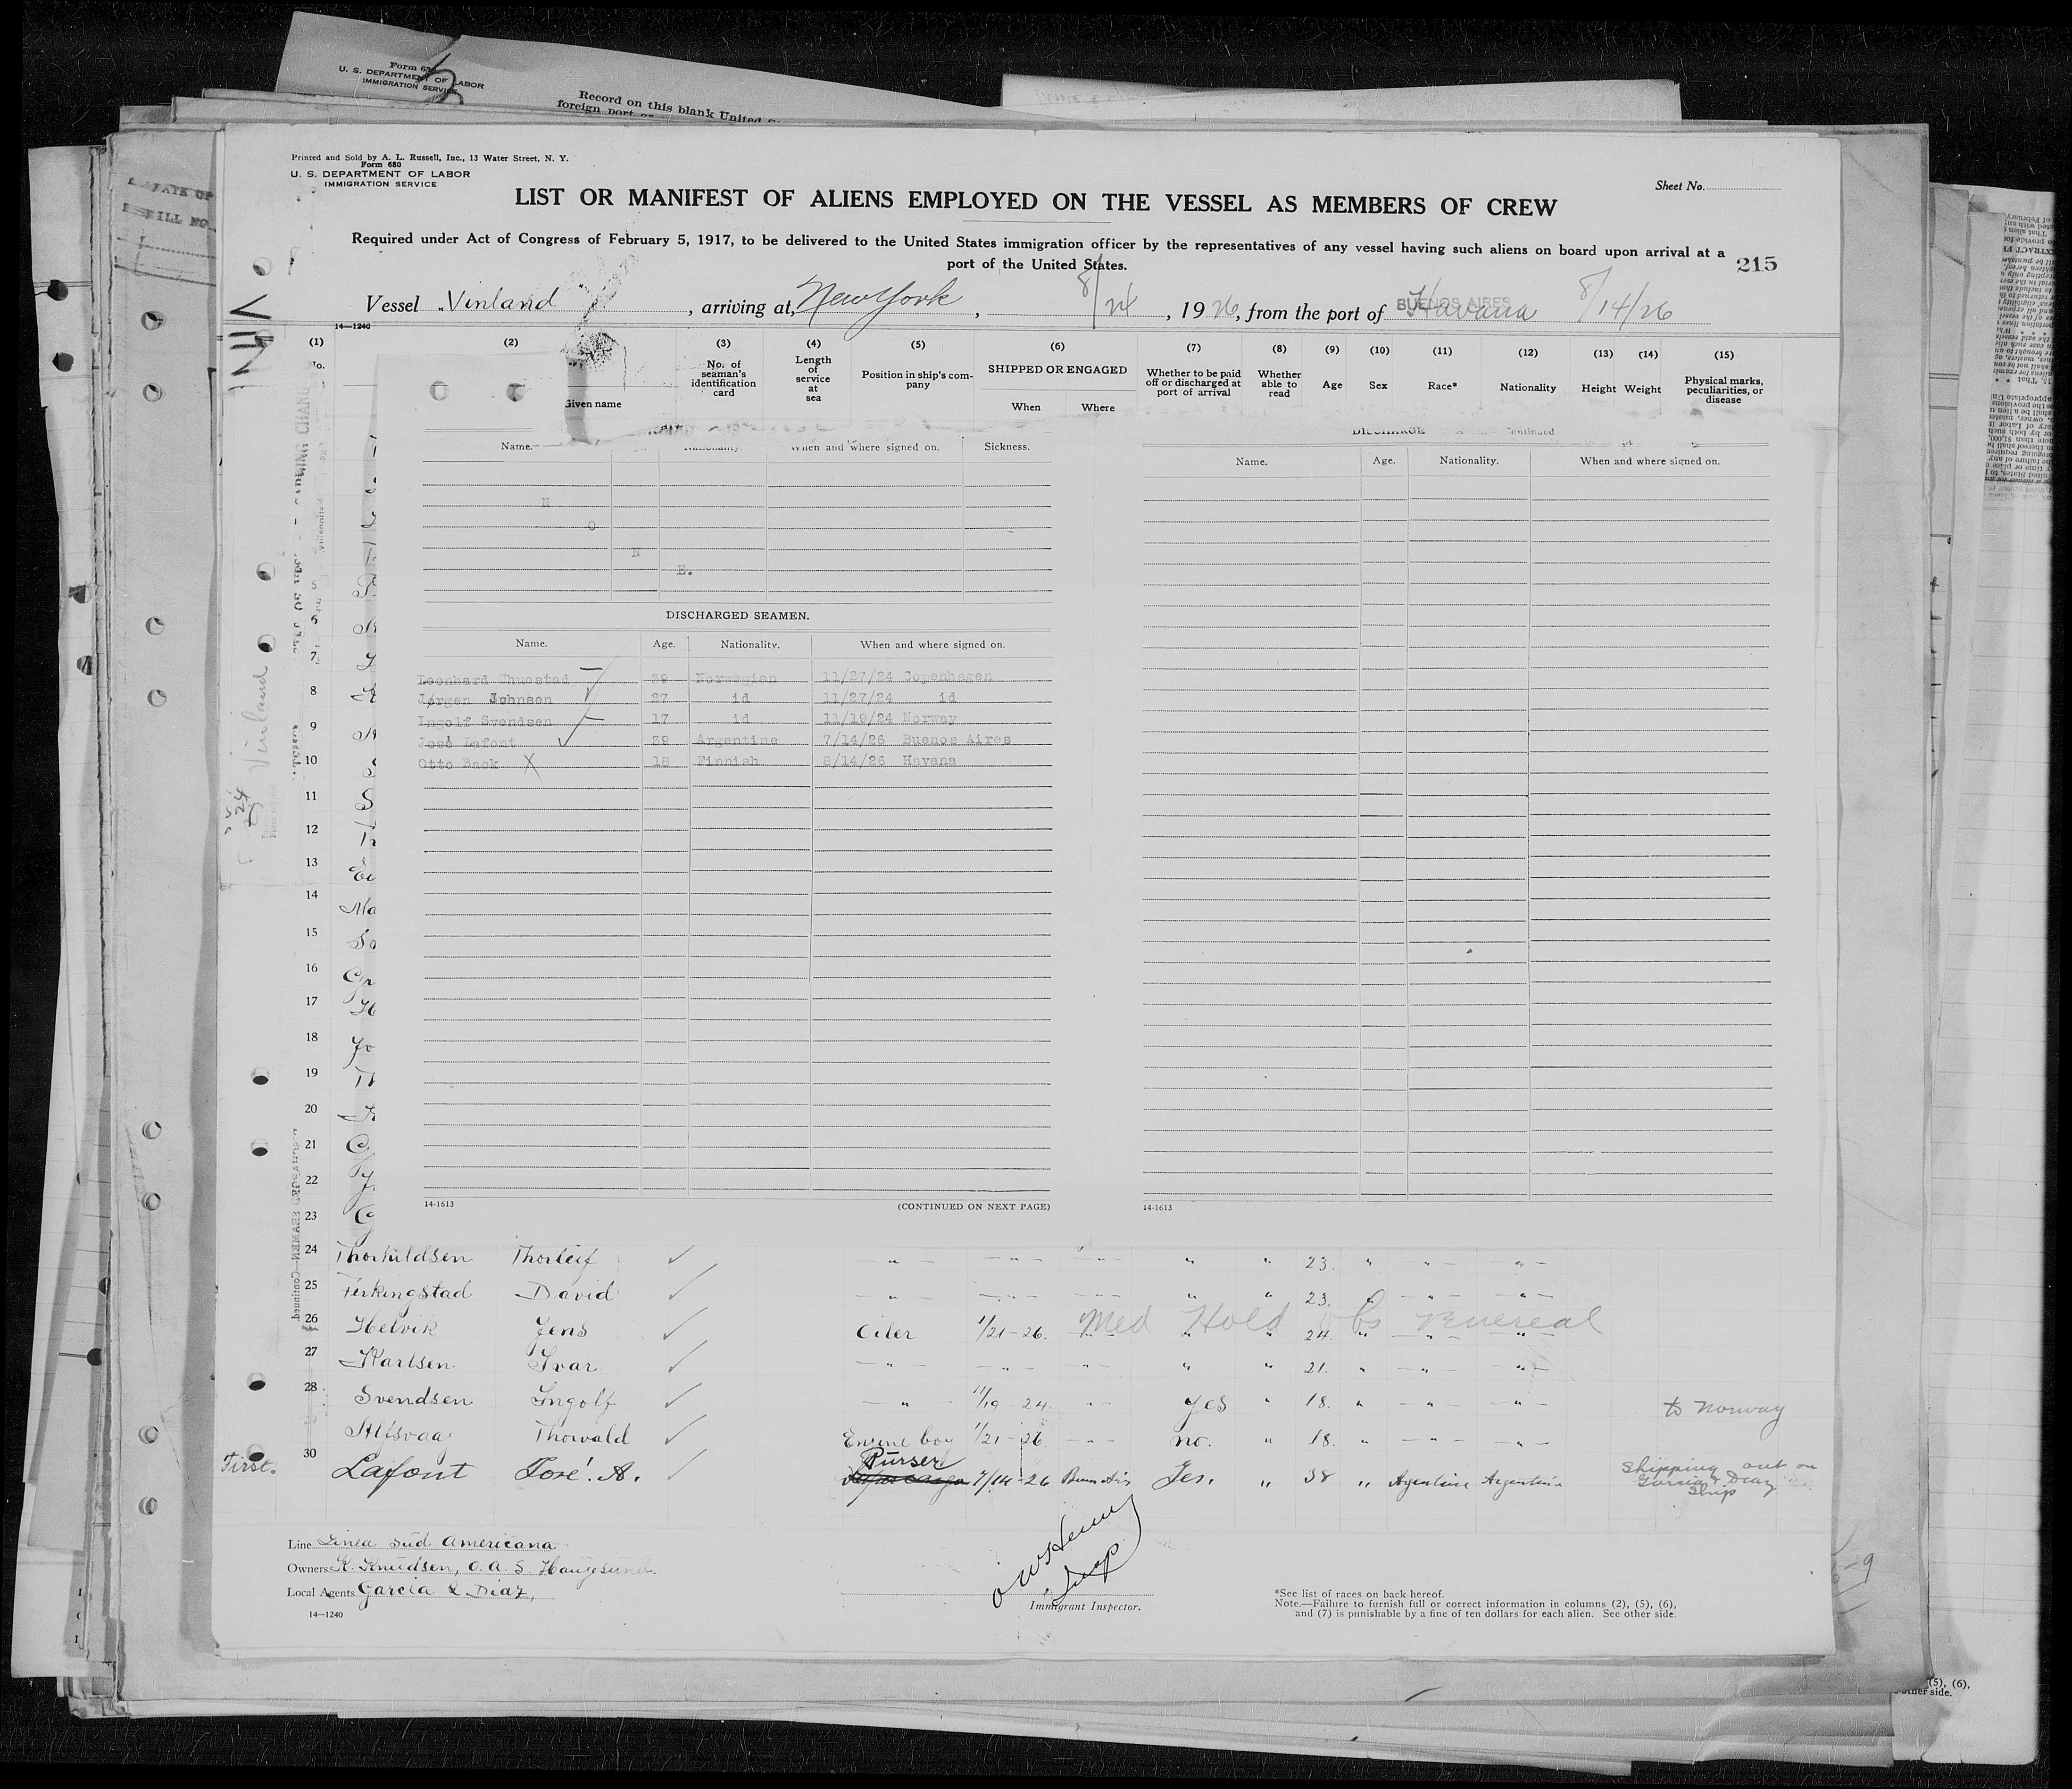 Form 680
U. S. DEPARTMENT OF LABOR
IMMIGRATION SERVICE
Record on this blank United
foreign port or
Printed and Sold by A. L. Russell, Inc., 13 Water Street, N. Y.
Form 680
U. S. DEPARTMENT OF LABOR
IMMIGRATION SERVICE
Sheet No.
LIST OR MANIFEST OF ALIENS EMPLOYED ON THE VESSEL AS MEMBERS OF CREW
Required under Act of Congress of February 5, 1917, to be delivered to the United States immigration officer by the representatives of any vessel having such aliens on board upon arrival at a
port of the United States.
215
Vessel Vinland, arriving at, New York, 8/24, 1926, from the port of BUENOS AIRES Havana 8/14/26
14—1240
(1) (2) (3) (4) (5) (6) (7) (8) (9) (10) (11) (12) (13) (14) (15)
No. of seaman's identification card
Length of service at sea
Position in ship's company
SHIPPED OR ENGAGED
When Where
Whether to be paid off or discharged at port of arrival
Whether able to read
Age Sex Race* Nationality Height Weight
Physical marks, peculiarities, or disease
Given name
Name. Nationality. When and where signed on. Sickness.
N
O
N
E.
DISCHARGED SEAMEN.
Name. Age. Nationality. When and where signed on.
Leonhard Thuestad 39 Norwegian 11/27/24 Copenhagen
Jørgen Johnsen 27 id 11/27/24 id
Ingolf Svendsen 17 id 11/19/24 Norway
José Lafont 39 Argentine 7/14/26 Buenos Aires
Otto Back X 18 Finnish 8/14/26 Havana
14-1613 (CONTINUED ON NEXT PAGE)
Continued
Name. Age. Nationality. When and where signed on.
14-1613
7
8
9
10
11
12
13
14
15
16
17
18
19
20
21
22
23
24 Thorkildsen Thorleif ✓ — " — — " — " " " 23. " " — " —
25 Ferkingstad David ✓ — " — — " — 23. " — " — — " —
26 Helvik Jens ✓ Oiler 1/21-26. " " 24. " — " — — " —
Med Hold Obs Venereal
27 Karlsen Ivar ✓ — " — — " — — " — " " 21. " — " — — " —
28 Svendsen Ingolf ✓ — " — 11/19-24. — " — Yes " 18. " — " — — " — to Norway
Alfsvaag Thorvald ✓ Engine boy 1/21-26 — " — no. " 18. " — " — — " —
First. 30 Lafont José A. ✓ Purser 7/14-26 Buenos Airs Yes. " 38 " Argentine Argentina
shipping out on
Garcia & Diaz
Ship
Line Linea Sud Americana
Owners K. Knudsen, O. A. S. Haugesund.
Local Agents Garcia & Diaz,
14—1240
Insp
Immigrant Inspector.
*See list of races on back hereof.
Note.—Failure to furnish full or correct information in columns (2), (5), (6),
and (7) is punishable by a fine of ten dollars for each alien. See other side.
Vinland
(5), (6),
other side.